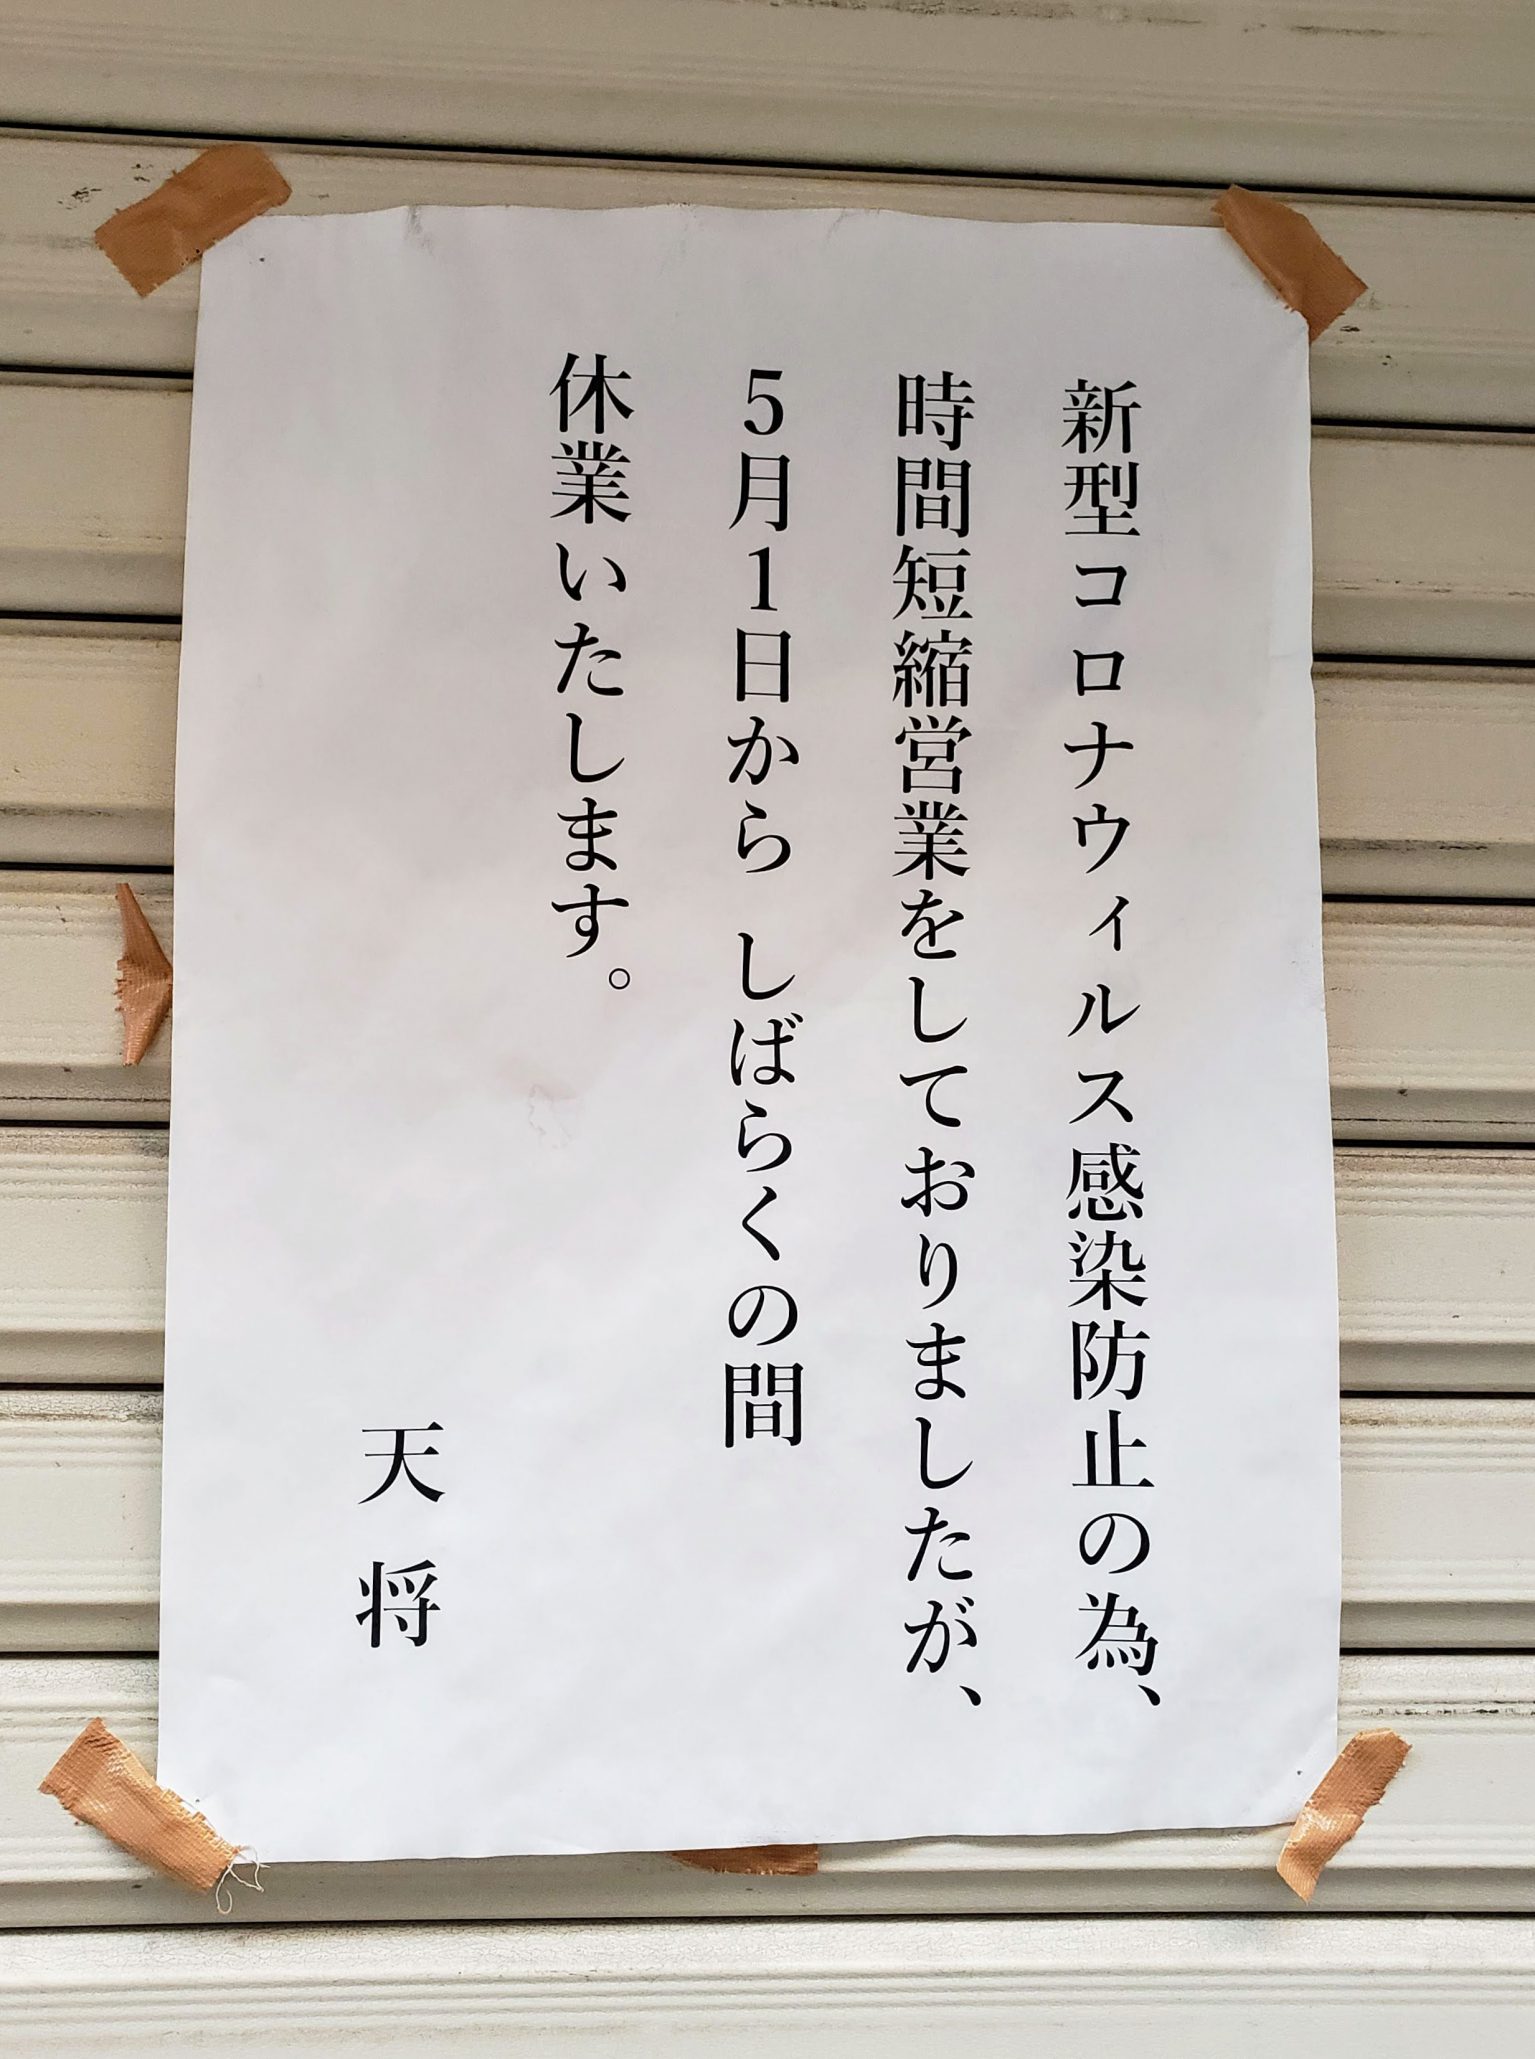 新型コロナウィルス感染防止の為、
時間短縮営業をしておりましたが、
5月1日から しばらくの間
休業いたします。
天 将